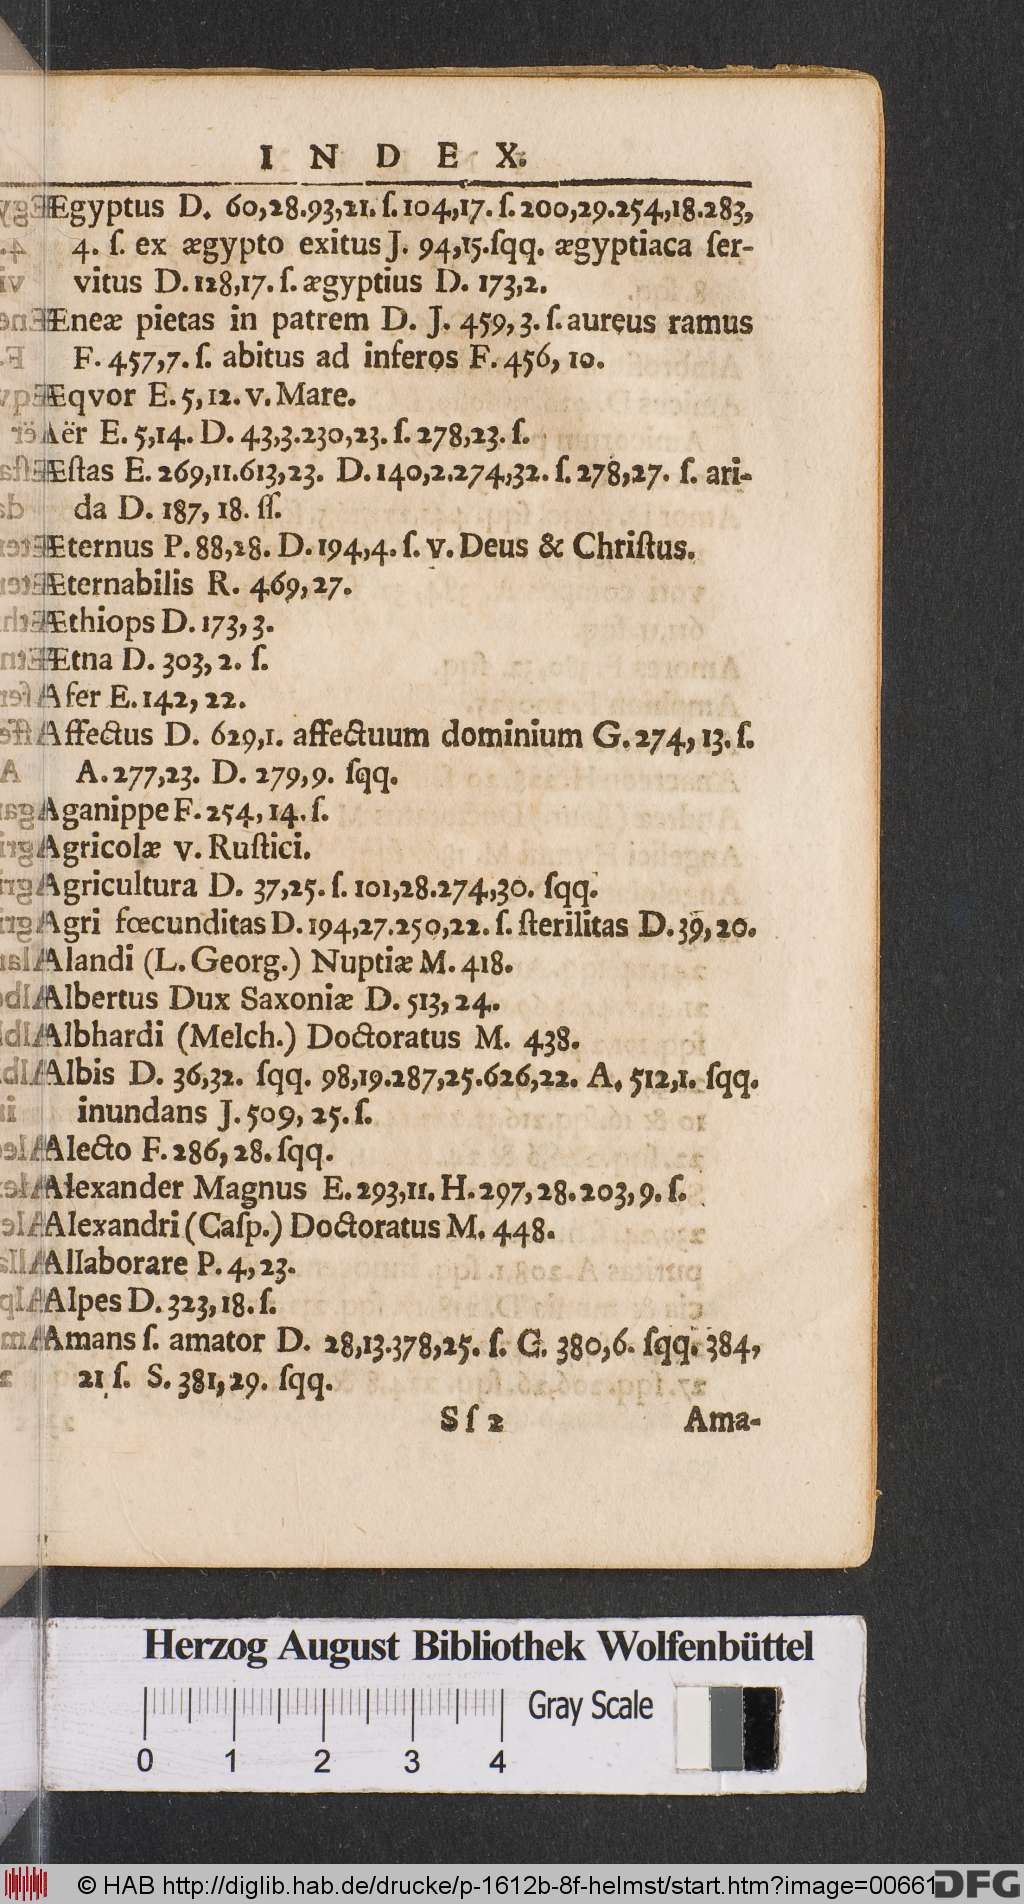 INDEX.
Ægyptus D. 60,28.93,21. ſ. 104,17. ſ. 200,29.254,18.283,
4. ſ. ex ægypto exitus J. 94,15.ſqq. ægyptiaca ſer-
vitus D. 128,17. ſ. ægyptius D. 173,2.
Æneæ pietas in patrem D. J. 459, 3. ſ. aureus ramus
F. 457,7. ſ. abitus ad inferos F. 456, 10.
Æqvor E. 5,12. v. Mare.
Aër E. 5,14. D. 43,3.230,23. ſ. 278,23. ſ.
Æſtas E. 269,11.613,23. D. 140,2.274,32. ſ. 278,27. ſ. ari-
da D. 187, 18. ſſ.
Æternus P. 88,28. D. 194,4. ſ. v. Deus & Chriſtus.
Æternabilis R. 469,27.
Æthiops D. 173,3.
Ætna D. 303, 2. ſ.
Afer E. 142, 22.
Affectus D. 629,1. affectuum dominium G. 274, 13. ſ.
A. 277,23. D. 279,9. ſqq.
Aganippe F. 254, 14. ſ.
Agricolæ v. Ruſtici.
Agricultura D. 37,25. ſ. 101,28.274,30. ſqq.
Agri fœcunditas D. 194,27.250,22. ſ. ſterilitas D. 39, 20.
Alandi (L. Georg.) Nuptiæ M. 418.
Albertus Dux Saxoniæ D. 513, 24.
Albhardi (Melch.) Doctoratus M. 438.
Albis D. 36,32. ſqq. 98,19.287,25.626,22. A. 512,1. ſqq.
inundans J. 509, 25. ſ.
Alecto F. 286, 28. ſqq.
Alexander Magnus E. 293,11. H. 297, 28. 203, 9. ſ.
Alexandri (Caſp.) Doctoratus M. 448.
Allaborare P. 4, 23.
Alpes D. 323, 18. ſ.
Amans ſ. amator D. 28,13.378,25. ſ. G. 380,6. ſqq. 384,
21 ſ. S. 381, 29. ſqq.
Sſ 2 Ama-
Herzog August Bibliothek Wolfenbüttel
Gray Scale
0 1 2 3 4
© HAB http://diglib.hab.de/drucke/p-1612b-8f-helmst/start.htm?image=00661
DFG